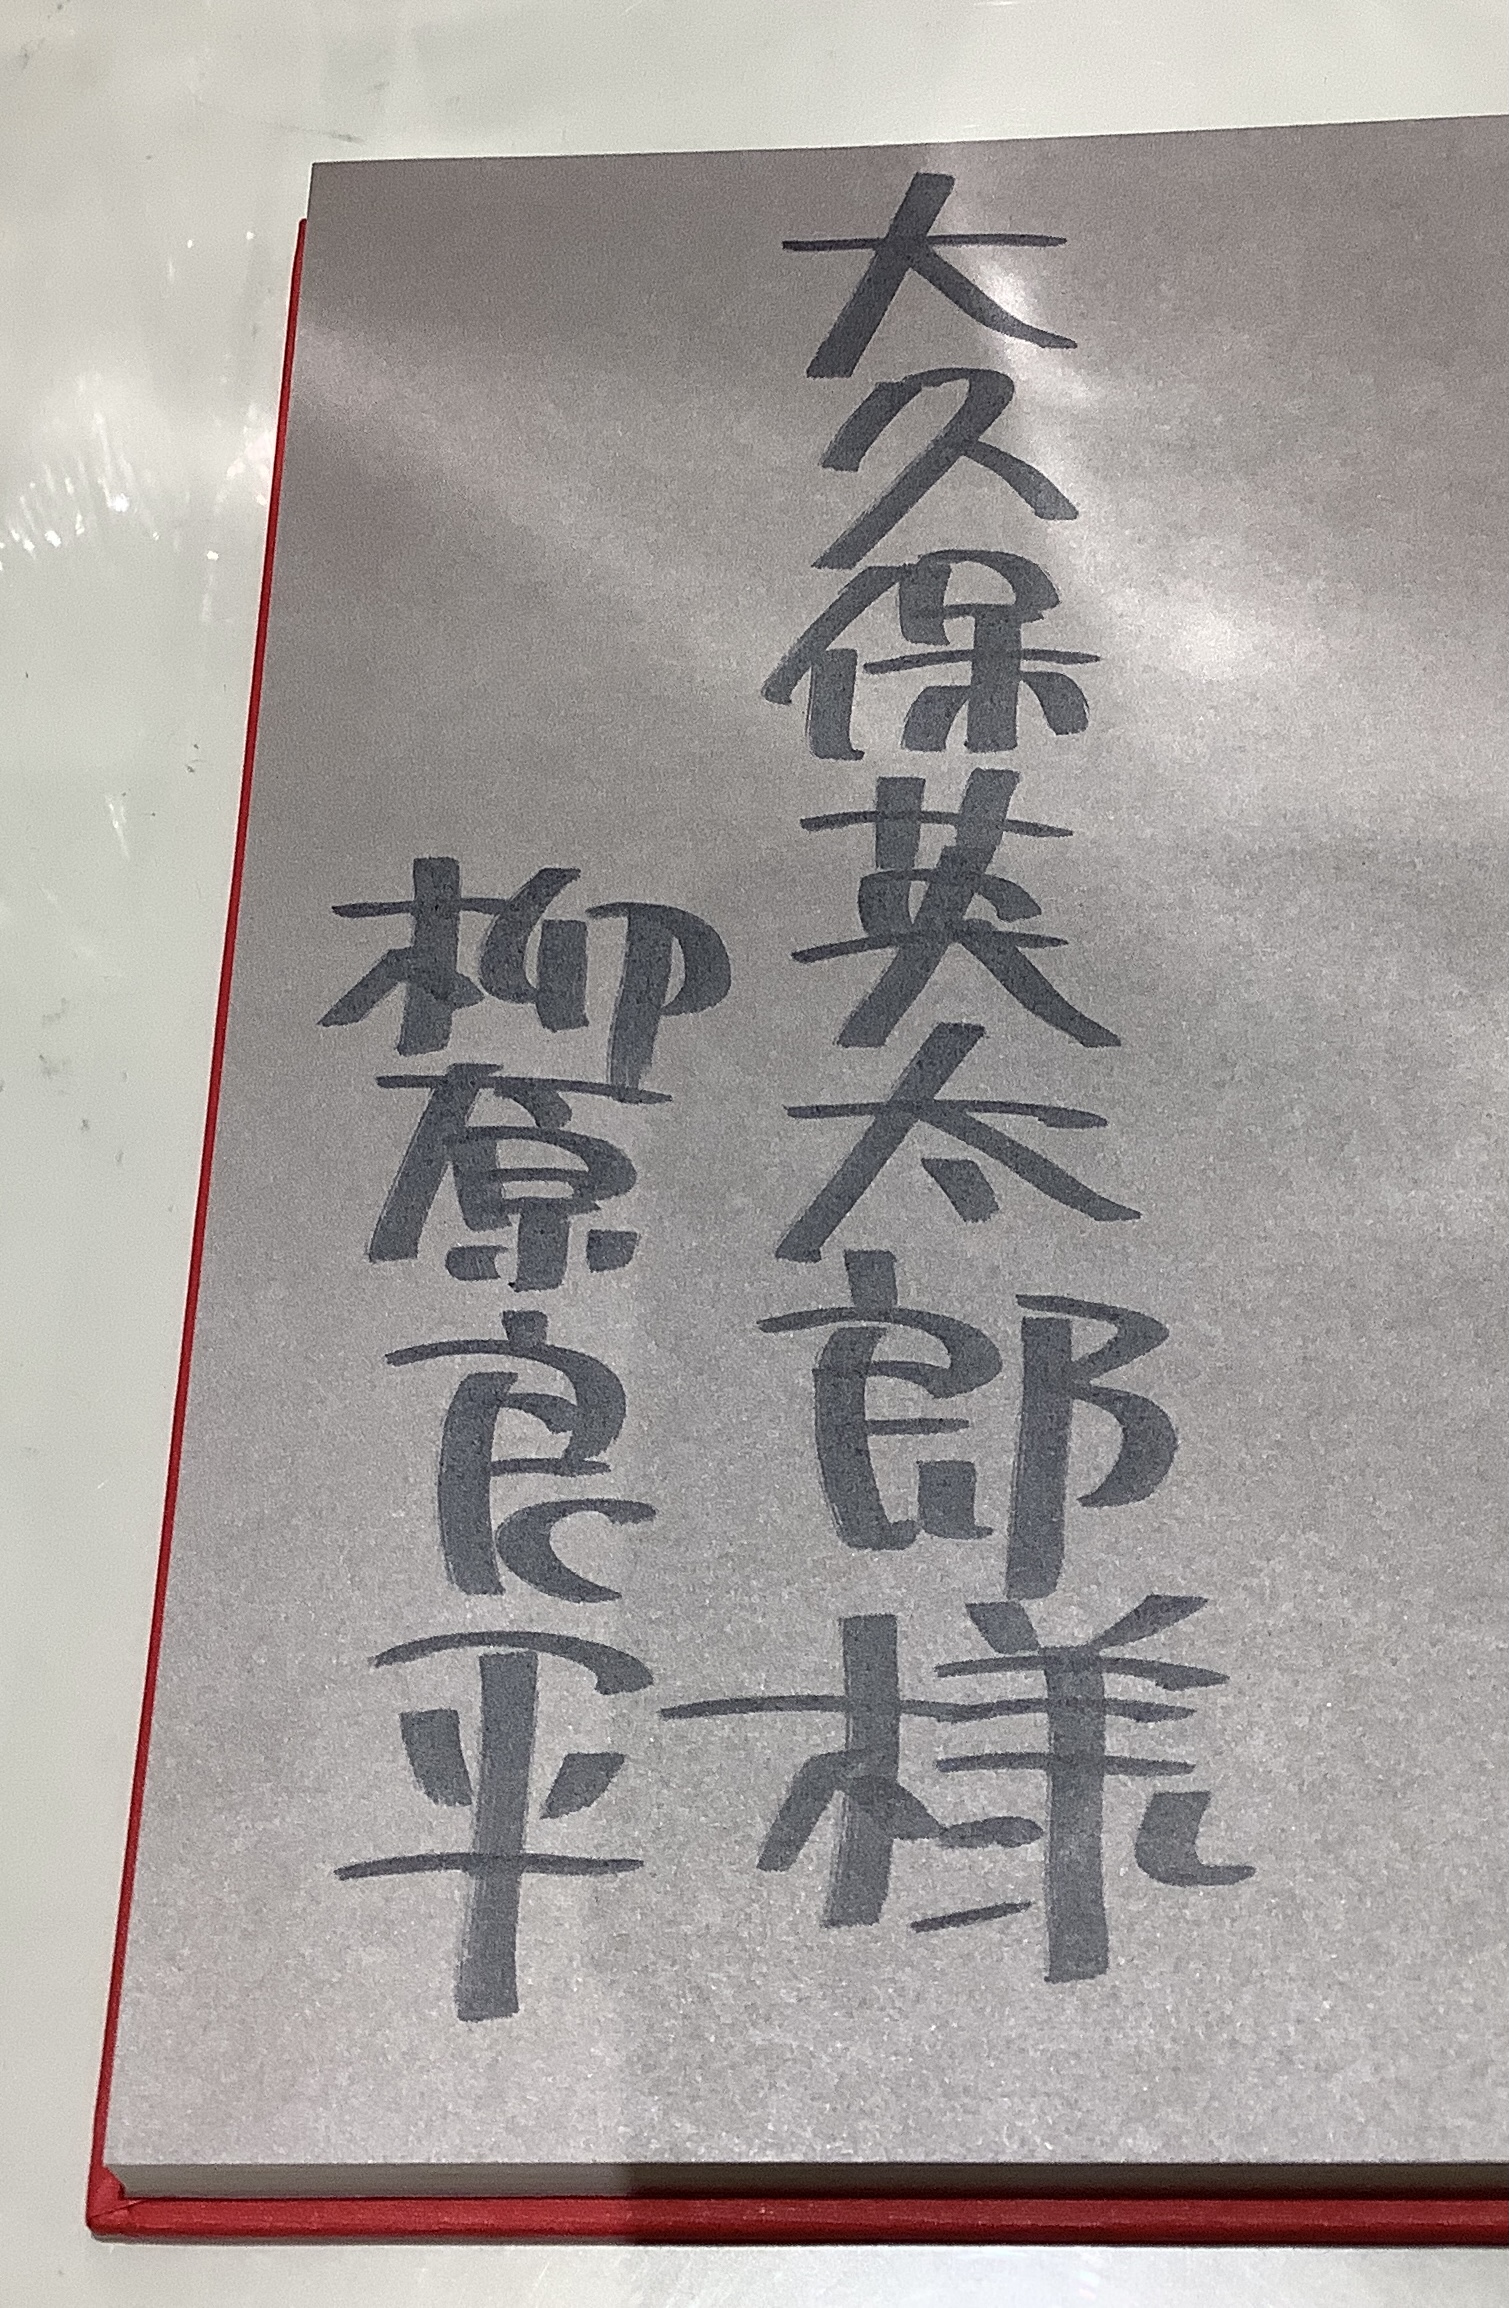 大久保英太郎様
柳原良平